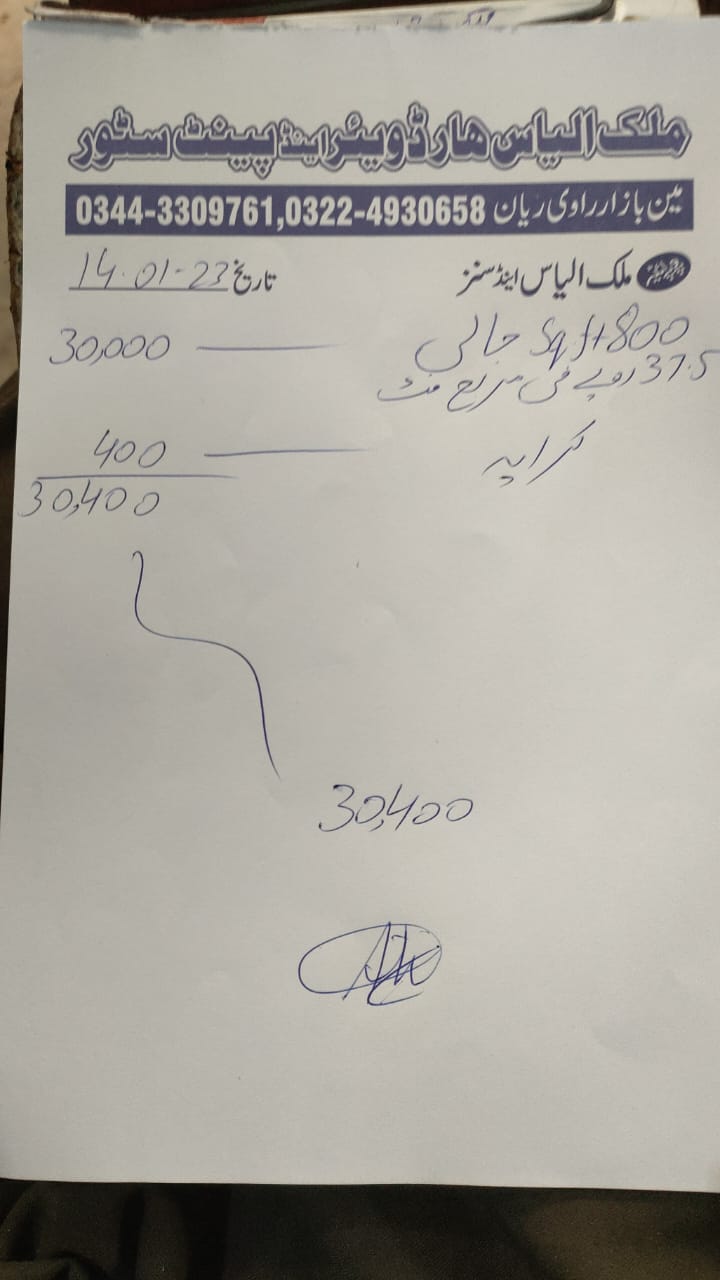 ملک الیاس ہارڈویئر اینڈ پینٹ سٹور
مین بازار راوی ریان 0344-3309761,0322-4930658
ملک الیاس اینڈ سنز
تاریخ 14-01-23
800 Sq ft جالی — 30,000
37.5 روپے فی مربع فٹ
کرایہ — 400
30,400
30,400